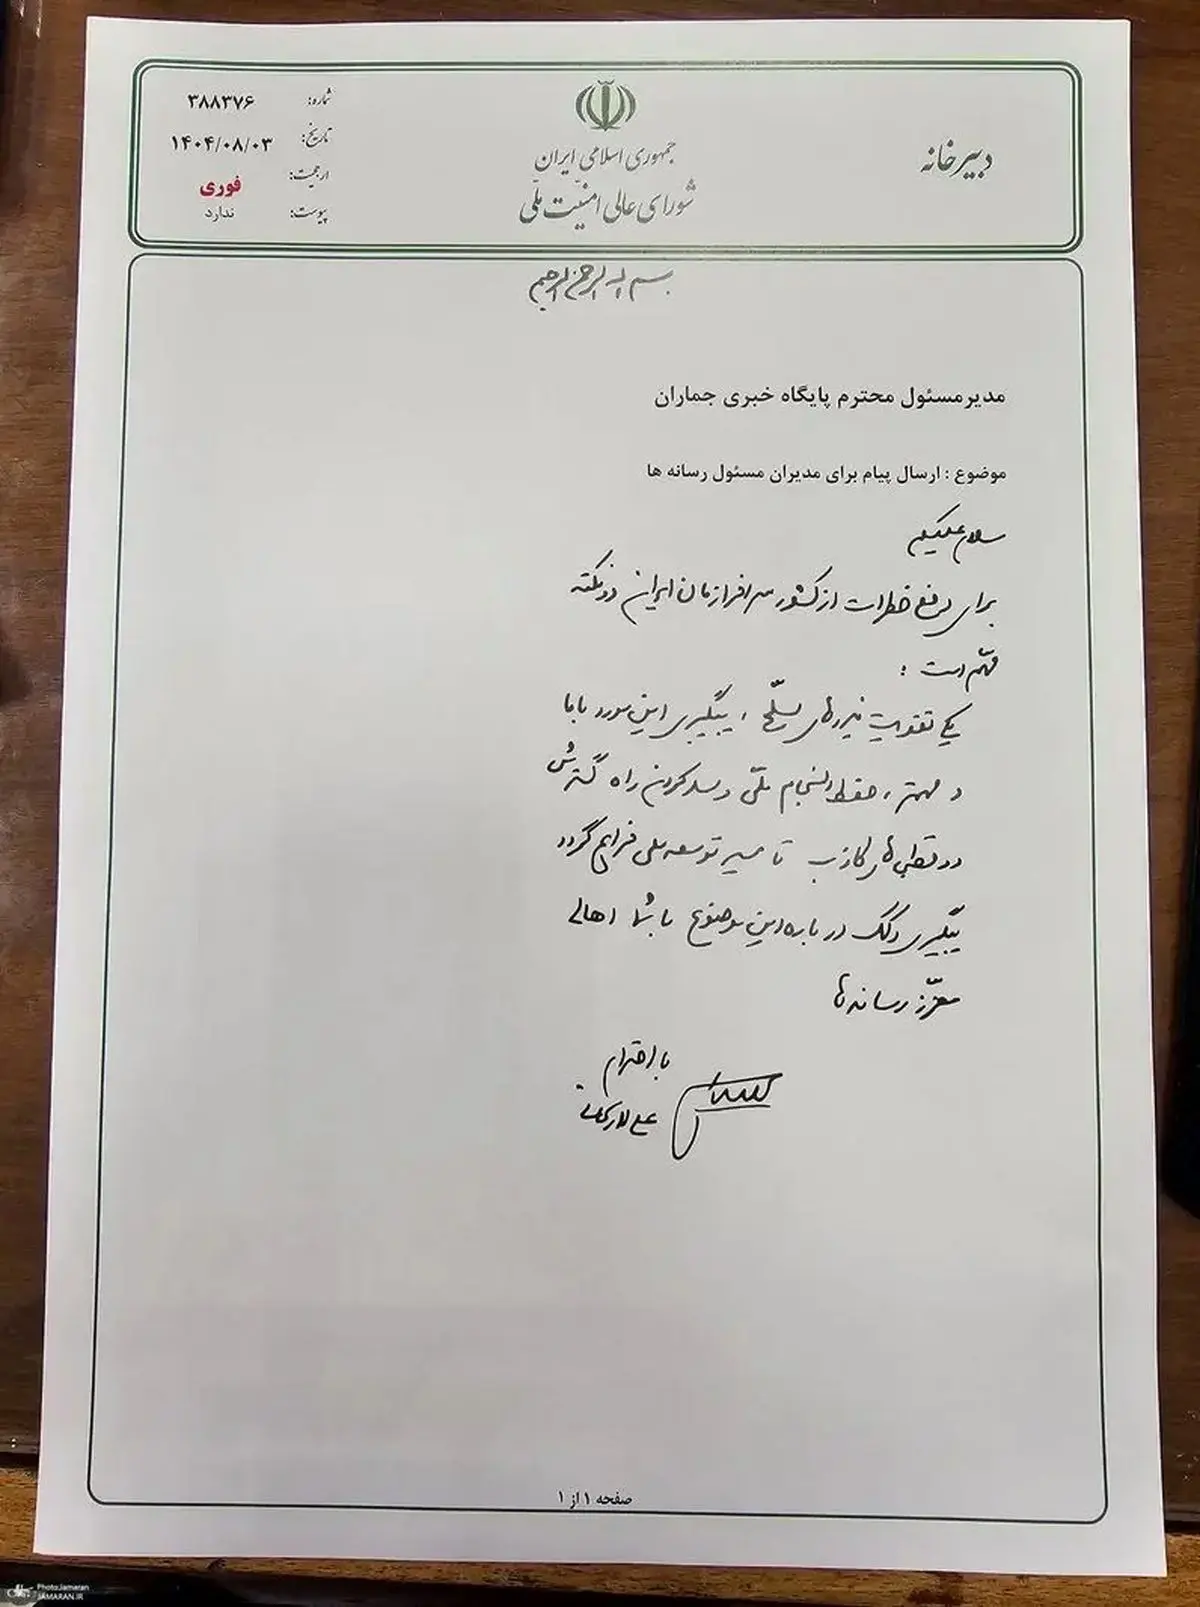 دبیرخانه
جمهوری اسلامی ایران
شورای عالی امنیّت ملّی
شماره: ۳۸۸۳۷۶
تاریخ: ۱۴۰۴/۰۸/۰۳
ارجحیت: فوری
پیوست: ندارد
بسم الله الرحمن الرحیم
مدیرمسئول محترم پایگاه خبری جماران
موضوع : ارسال پیام برای مدیران مسئول رسانه ها
سلام علیکم
برای رفع خطرات از کشور سرافرازمان ایران دو نکته
مهّم است :
یکی تقویت نیروهای مسلّح ، پیگیری این مورد با ما
و مهمتر ، حفظ انسجام ملّی و سد کردن راه گسترش
دو قطبی‌های کاذب تا مسیر توسعه ملی فراهم گردد
پیگیری و کمک درباره این موضوع با شما اهالی
معزّز رسانه‌ها
با احترام
علی لاریجانی
صفحه ۱ از ۱
Photo:Jamaran
JAMARAN.IR